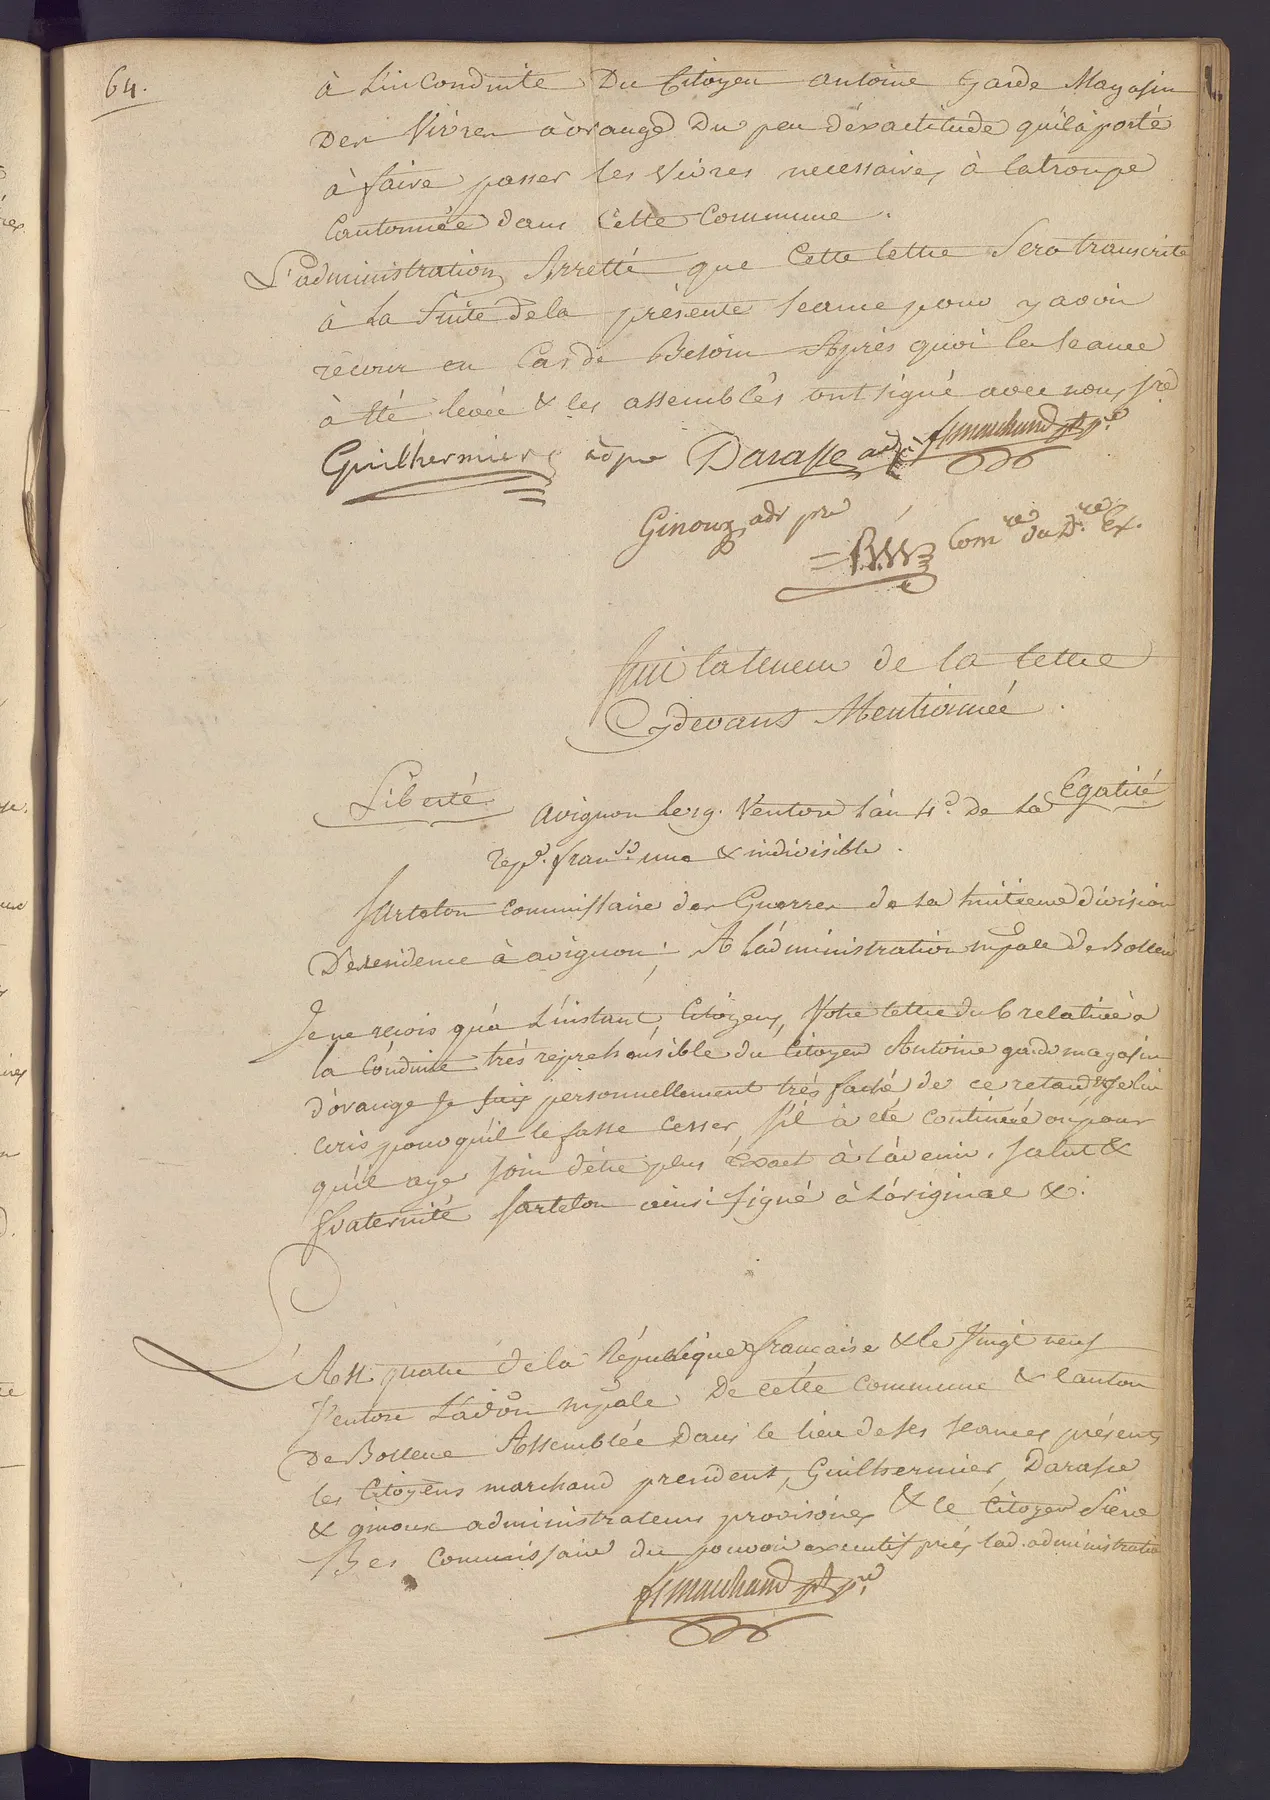 64.
à L'inconduite Du Citoyen antoine garde Magasin
Des Vivres à orange Du peu d'éxactitude qu'il à porté
à faire passer les Vivres necessaires à la troupe
Cantonnée dans Cette Commune.
L'administration Arretté que Cette lettre Sera transcrite
à La Suite de la présente seance pour y avoir
recour en Cas de Besoin Après quoi la seance
à été levée & les assemblés ont signé avec nous
Guilhermier adpre Darasse marchand
Ginoux adr pre
Comre du Dre Ex.
Suit la teneur de la lettre
Cydevans Mentionnée.
Liberté Egalité
avignon le 19. Ventose l'an 4e. De La
repe. franse. une & indivisible.
Sartelon commissaire des Guerres de la huitieme division
De residence à avignon; A l'administration mpale de Bollene
Je ne reçois qu'à L'instant, Citoyens, Votre lettre du 6 relative à
la Conduite très reprehensible du Citoyen Antoine garde magasin
d'orange Je suis personnellement très faché de ce retard & je lui
écris pour qu'il le fasse cesser, s'il à eté continué ou pour
qu'il aye soin d'être plus éxact à l'avenir. Salut &
fraternité Sartelon ainsi signé à L'original &.
L'An quatre de la République française & le Vingt neuf
Ventose L'adon mpale De cette commune & Canton
de Bollene Assemblée Dans le lieu de ses seances présents
les Citoyens marchand president, Guilhermier, Darasse
& ginoux administrateurs provisoires & le Citoyen
Bes Commissaire du pouvoir executif près lad. administration
marchand